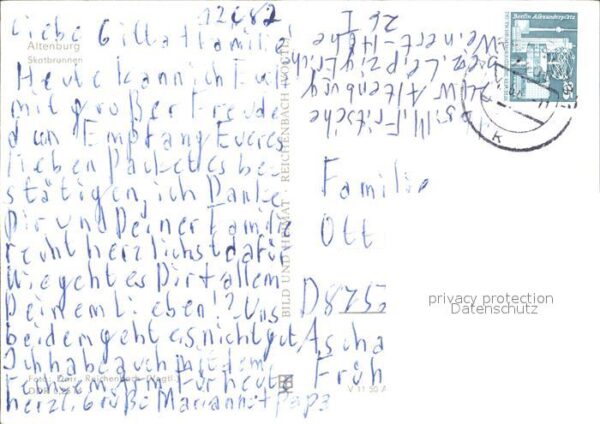 12682
Altenburg
Skatbrunnen
Liebe Gilla + Familie!
Heute kann ich Euch
mit großer Freude
den Empfang Eueres
lieben Packetes be-
stätigen, ich Danke
Dir und Deiner Familie
recht herzlichst dafür
Wie geht es Dir + allem
Deinem lieben!? Uns
beiden geht es nicht gut,
Ich habe auch mit dem
herzl. Grüße Mariannet Papa
Foto: Darr, Reichenbach (Vogtl.)
BILD UND HEIMAT · REICHENBACH (VOGTL)
V 11 50 A
Abs. M. Fritsche
Altenburg
bez. Leipzig Erich
Weinert-Höhe
26 I
Berlin, Alexanderplatz
Familie
Ott
D 875
Ascha
Früh
privacy protection
Datenschutz